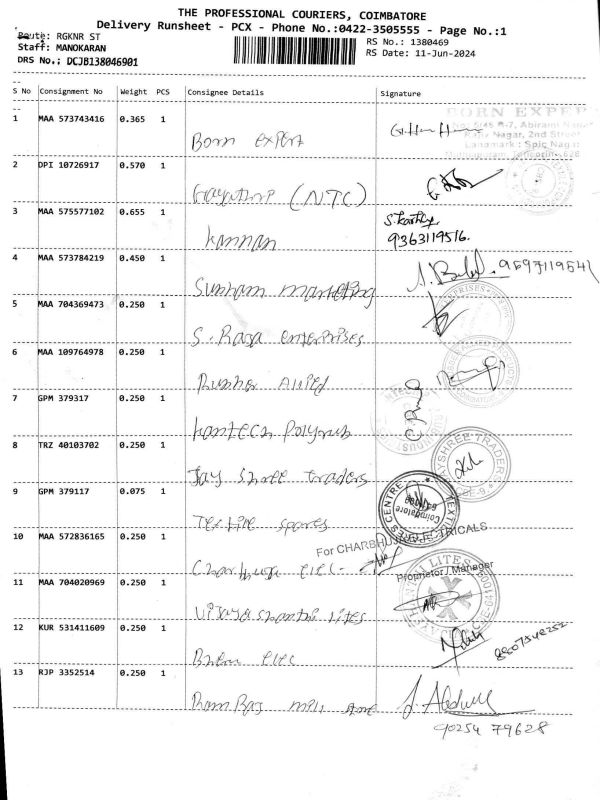 THE PROFESSIONAL COURIERS, COIMBATORE
Delivery Runsheet - PCX - Phone No.:0422-3505555 - Page No.:1
Route: RGKNR ST
Staff: MANOKARAN
DRS No.; DCJB138046901
RS No.: 1380469
RS Date: 11-Jun-2024
S No Consignment No Weight PCS Consignee Details Signature
1 MAA 573743416 0.365 1
Born Expert
BORN EXPER
Rajiv Nagar, 2nd Street
Landmark : Spic Nagar
2 DPI 10726917 0.570 1
Gayathri (NTC)
3 MAA 575577102 0.655 1
Kannan
S. Karthy
9363119516.
4 MAA 573784219 0.450 1
Subham marketing
5 MAA 704369473 0.250 1
S. Raja enterprises
6 MAA 109764978 0.250 1
Rubber Allied
7 GPM 379317 0.250 1
Kantech Polyrub
8 TRZ 40103702 0.250 1
Jay Shree traders
JAYSHREE TRADERS
9 GPM 379117 0.075 1
Textile spares
CENTRE
Coimbatore
10 MAA 572836165 0.250 1
Charbhuja elec-
For CHARBHUJA ELECTRICALS
Proprietor / Manager
11 MAA 704020969 0.250 1
Vijaya shanthi lites
12 KUR 531411609 0.250 1
elec
13 RJP 3352514 0.250 1
Ram Raj
90254 79628